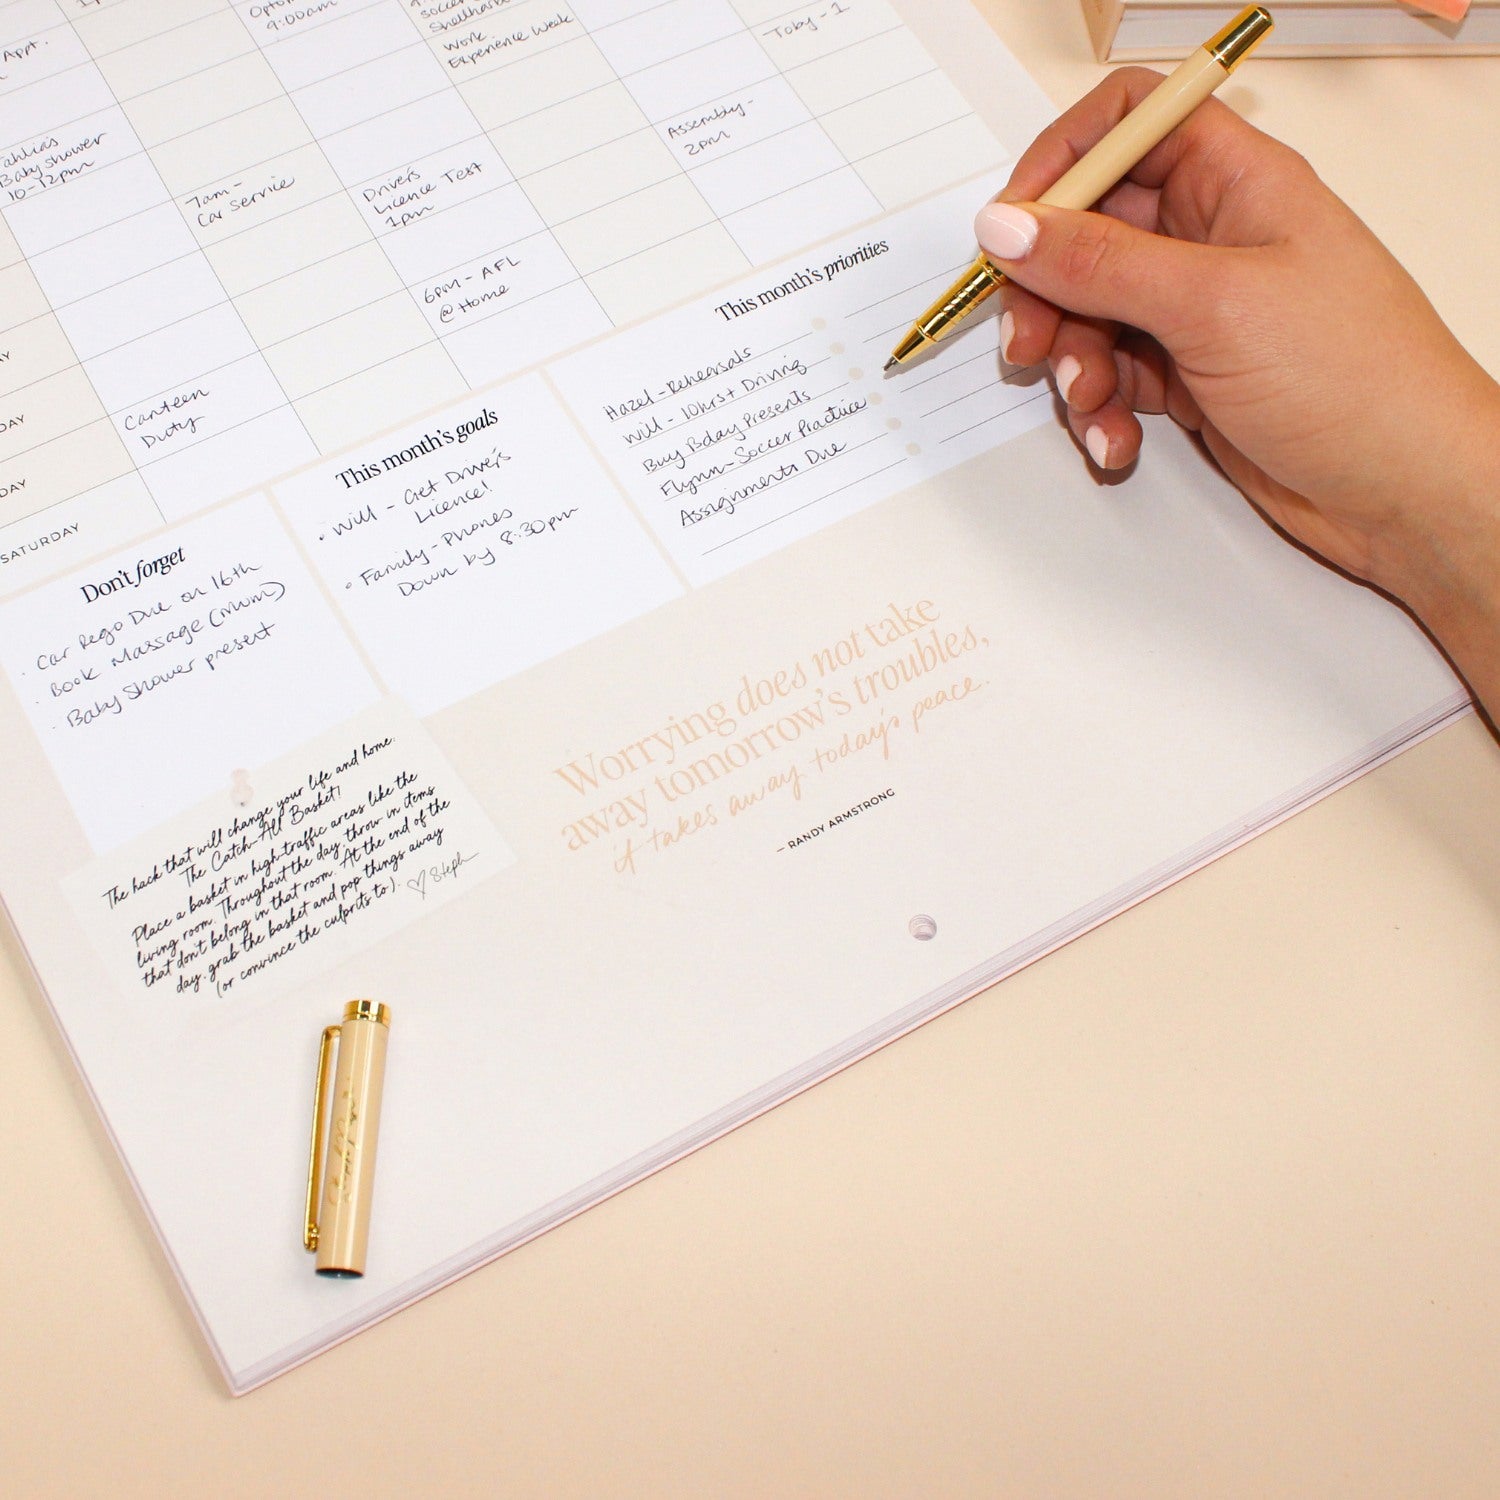 Appt.
9:00am
Work
Experience Week
Toby - 1
Baby Shower
10-12pm
7am -
Car Service
Driver's
Licence Test
1pm
Assembly -
2pm
6pm - AFL
@ Home
Canteen
Duty
AY
DAY
DAY
SATURDAY
Don't forget
· Car Rego Due on 16th
· Book Massage (mum)
· Baby Shower present
This month's goals
• Will - Get Driver's
Licence!
• Family - Phones
Down by 8:30pm
This month's priorities
Hazel - Rehearsals
Will - 10hrs + Driving
Buy Bday Presents
Flynn - Soccer Practice
Assignments Due
The hack that will change your life and home:
The Catch-All Basket!
Place a basket in high-traffic areas like the
living room. Throughout the day, throw in items
that don't belong in that room. At the end of the
day, grab the basket and pop things away
(or convince the culprits to). ♡ Steph
Worrying does not take
away tomorrow's troubles,
it takes away today's peace.
— RANDY ARMSTRONG